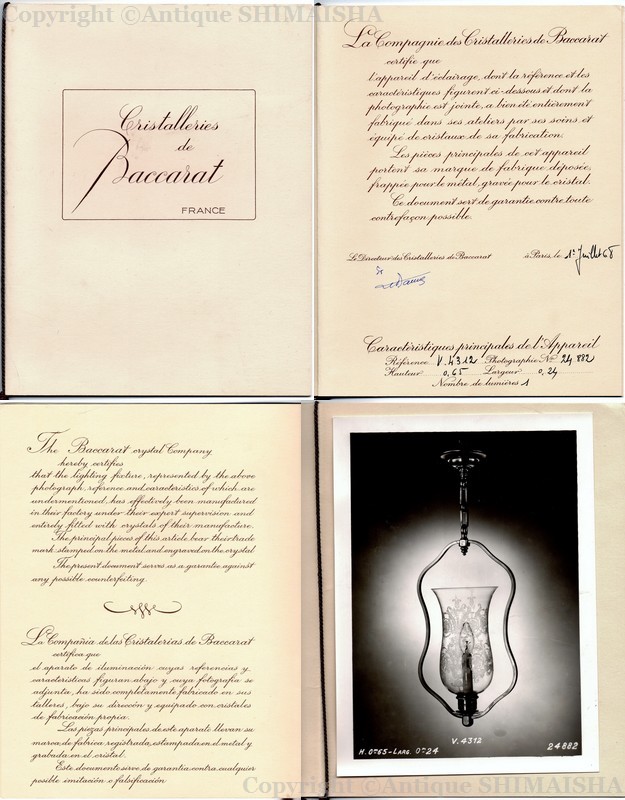 Copyright ©Antique SHIMAISHA
Cristalleries
de
Baccarat
FRANCE
Copyright ©Antique SHIMAISHA
La Compagnie des Cristalleries de Baccarat
certifie que
l'appareil d'éclairage, dont la référence et les
caractéristiques figurent ci-dessous et dont la
photographie est jointe, a bien été entièrement
fabriqué dans ses ateliers par ses soins et
équipé de cristaux de sa fabrication.
Les pièces principales de cet appareil
portent sa marque de fabrique déposée,
frappée pour le métal, gravée pour le cristal.
Ce document sert de garantie contre toute
contrefaçon possible.
Le Directeur des Cristalleries de Baccarat
à Paris, le 1er Juillet 68
Caractéristiques principales de l'Appareil
Référence V.4312 Photographie No 24 882
Hauteur 0,65 Largeur 0,24
Nombre de lumières 1
The Baccarat crystal Company
hereby certifies
that the lighting fixture, represented by the above
photograph, reference and caracteristics of which are
undermentioned, has effectively been manufactured
in their factory under their expert supervision and
entirely fitted with crystals of their manufacture.
The principal pieces of this article bear their trade
mark stamped on the metal and engraved on the crystal
The present document serves as a garantee against
any possible counterfeiting.
La Compañia de las Cristalerias de Baccarat
certifica que
el aparato de iluminación cuyas referencias y
características figuran abajo y cuya fotografía se
adjunta, ha sido completamente fabricado en sus
talleres, bajo su direccón y equipado con cristales
de fabricación propia.
Las piezas principales de este aparato llevan su
marca de fabrica registrada, estampada en el metal y
grabada en el cristal.
Este documento sirve de garantía contra cualquier
posible imitación o falsificación
V. 4312
H. 0m65 - LARG. 0m24
24882
Copyright ©Antique SHIMAISHA